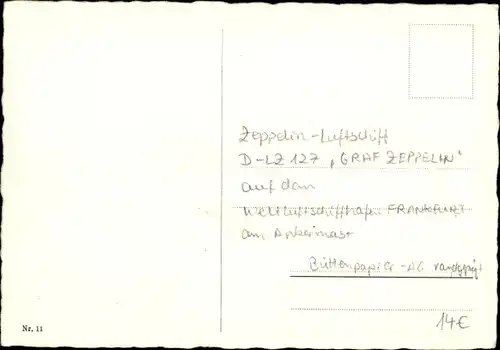 Zeppelin-Luftschiff
D-LZ 127 „GRAF ZEPPELIN“
auf dem
Weltluftschiffhafen FRANKFURT
am Ankermast
Büttenpapier-AG
14€
Nr. 11